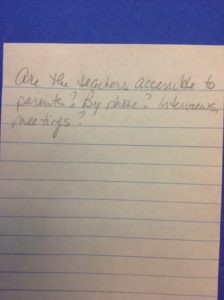 Are the teachers accessible to
parents? By phone? Interviews,
meetings?